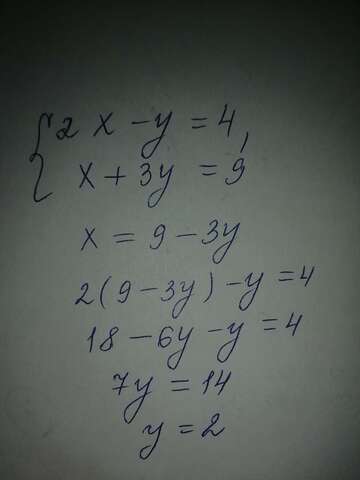 { 2x - y = 4,
x + 3y = 9
x = 9 - 3y
2(9 - 3y) - y = 4
18 - 6y - y = 4
7y = 14
y = 2